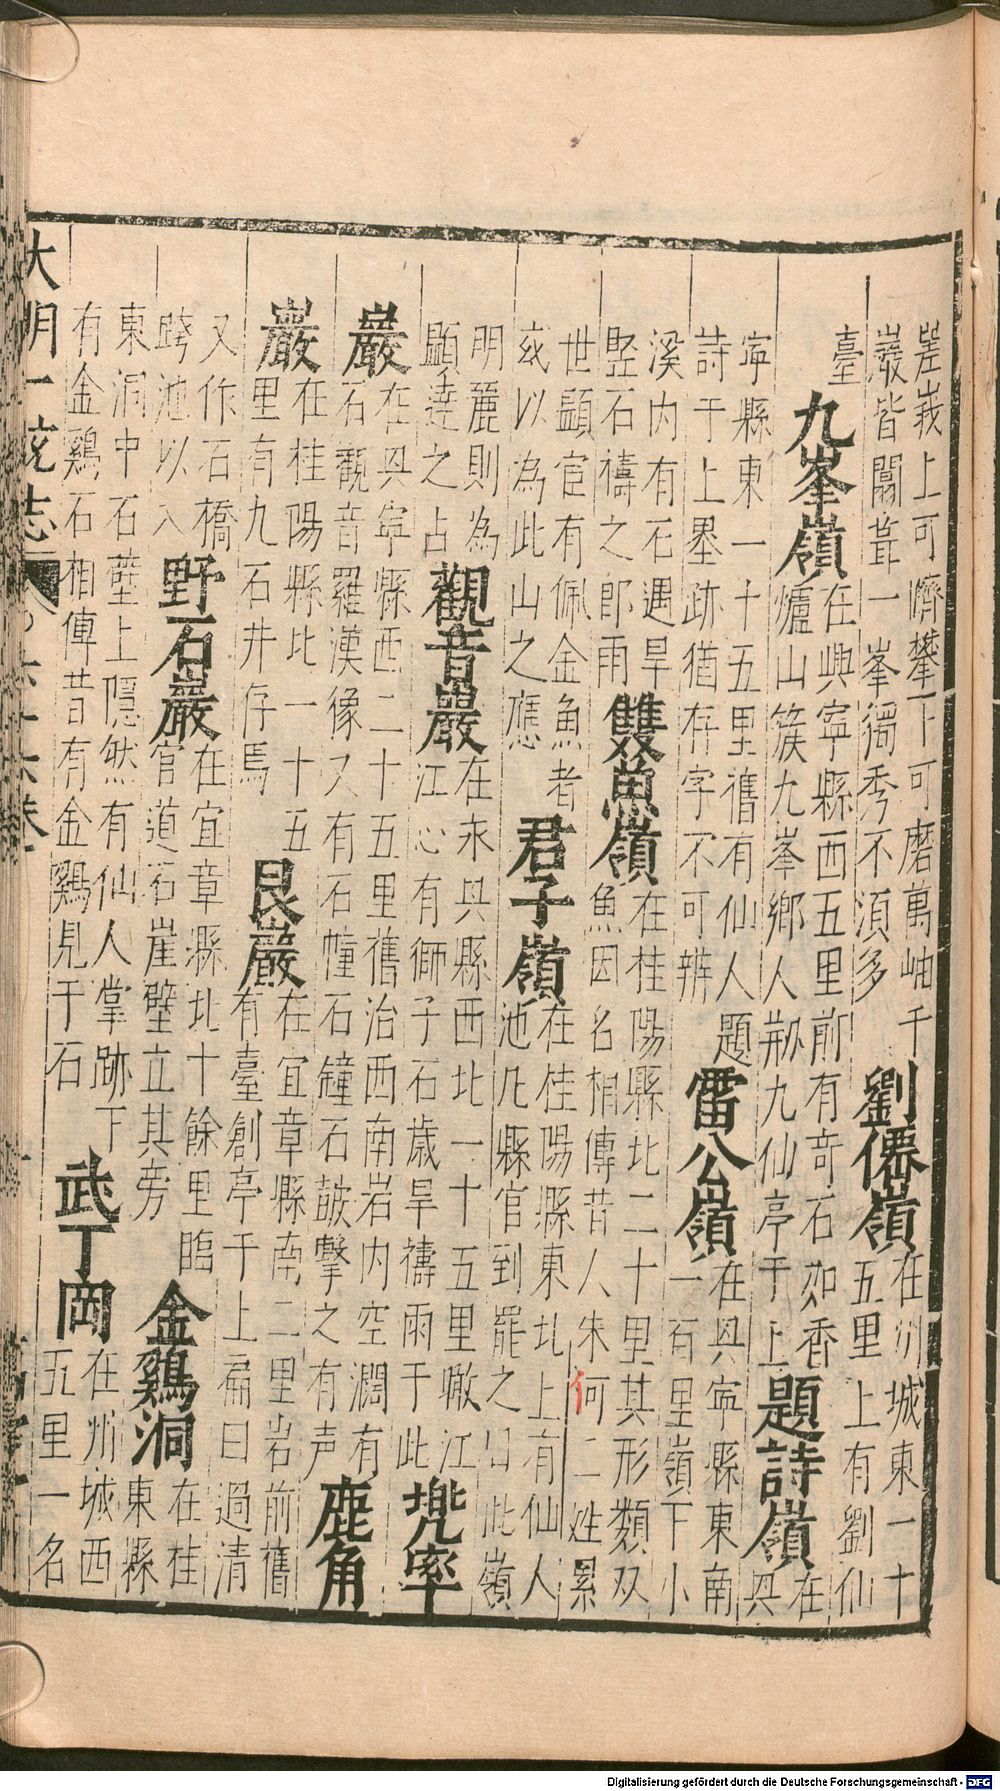 崖峩上可隮攀下可磨萬岫千
巖皆關靠一峯獨秀不須多
劉僊嶺
在州城東一十
五里上有劉仙
臺
九峯嶺
在興寧縣西五里前有奇石如香
爐山簇九峯鄉人剏九仙亭于上
題詩嶺
在
興
寧縣東一十五里舊有仙人題
詩于上墨跡猶存字不可辨
雷公嶺
在興寧縣東南
一百里嶺下小
溪内有石遇旱
竪石禱之即雨
雙魚嶺
在桂陽縣北二十里其形類双
魚因名相傳昔人朱何二姓累
世顯宦有佩金魚者
或以為此山之應
君子嶺
在桂陽縣東北上有仙人
池凡縣官到罷之日此嶺
明麗則為
顯達之占
觀音巖
在永興縣西北一十五里瞰江
江心有獅子石歲旱禱雨于此
兠率
巖
在興寧縣西二十五里舊治西南岩内空濶有
石觀音羅漢像又有石幢石鐘石皷擊之有声
鹿角
巖
在桂陽縣北一十五
里有九石井存焉
艮巖
在宜章縣南二里岩前舊
有臺創亭于上扁曰過清
又作石橋
跨池以入
野石巖
在宜章縣北十餘里臨
官道石崖壁立其旁
金鷄洞
在桂
東縣
東洞中石壁上隱然有仙人掌跡下
有金鷄石相傳昔有金鷄見于石
武丁岡
在州城西
五里一名
大明一统志
Digitalisierung gefördert durch die Deutsche Forschungsgemeinschaft - DFG